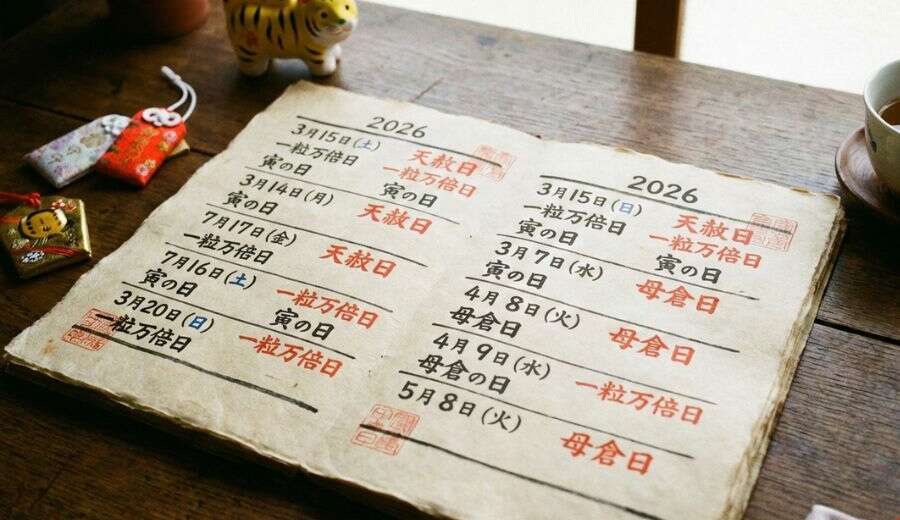 2026
3月15日(土) 天赦日
一粒万倍日 一粒万倍日
寅の日 寅の日
3月14日(月) 天赦日
寅の日
7月17日(金) 天赦日
一粒万倍日
7月16日(土) 一粒万倍日
寅の日 寅の日
3月20日(日) 一粒万倍日
一粒万倍日
2026
3月15日(日) 天赦日
一粒万倍日 一粒万倍日
寅の日 寅の日
3月7日(水) 母倉日
寅の日
4月8日(火) 母倉日
母倉日
4月9日(水) 一粒万倍日
母倉の日
5月8日(火) 母倉日